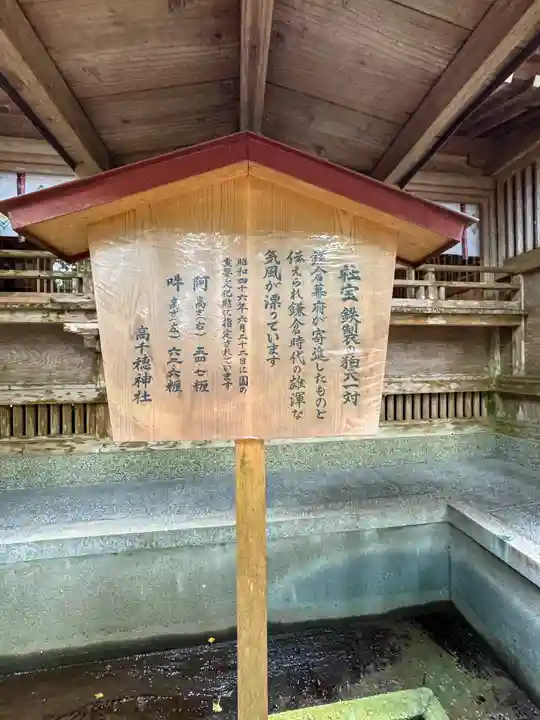 社宝 鉄製の狛犬一対
鎌倉幕府が寄進したものと
伝えられ鎌倉時代の雄渾な
気風が漂っています
昭和四十六年六月二十二日に国の
重要文化財に指定されています
阿 高さ(右) 五四・七糎
吽 高さ(左) 六二・六糎
高千穂神社